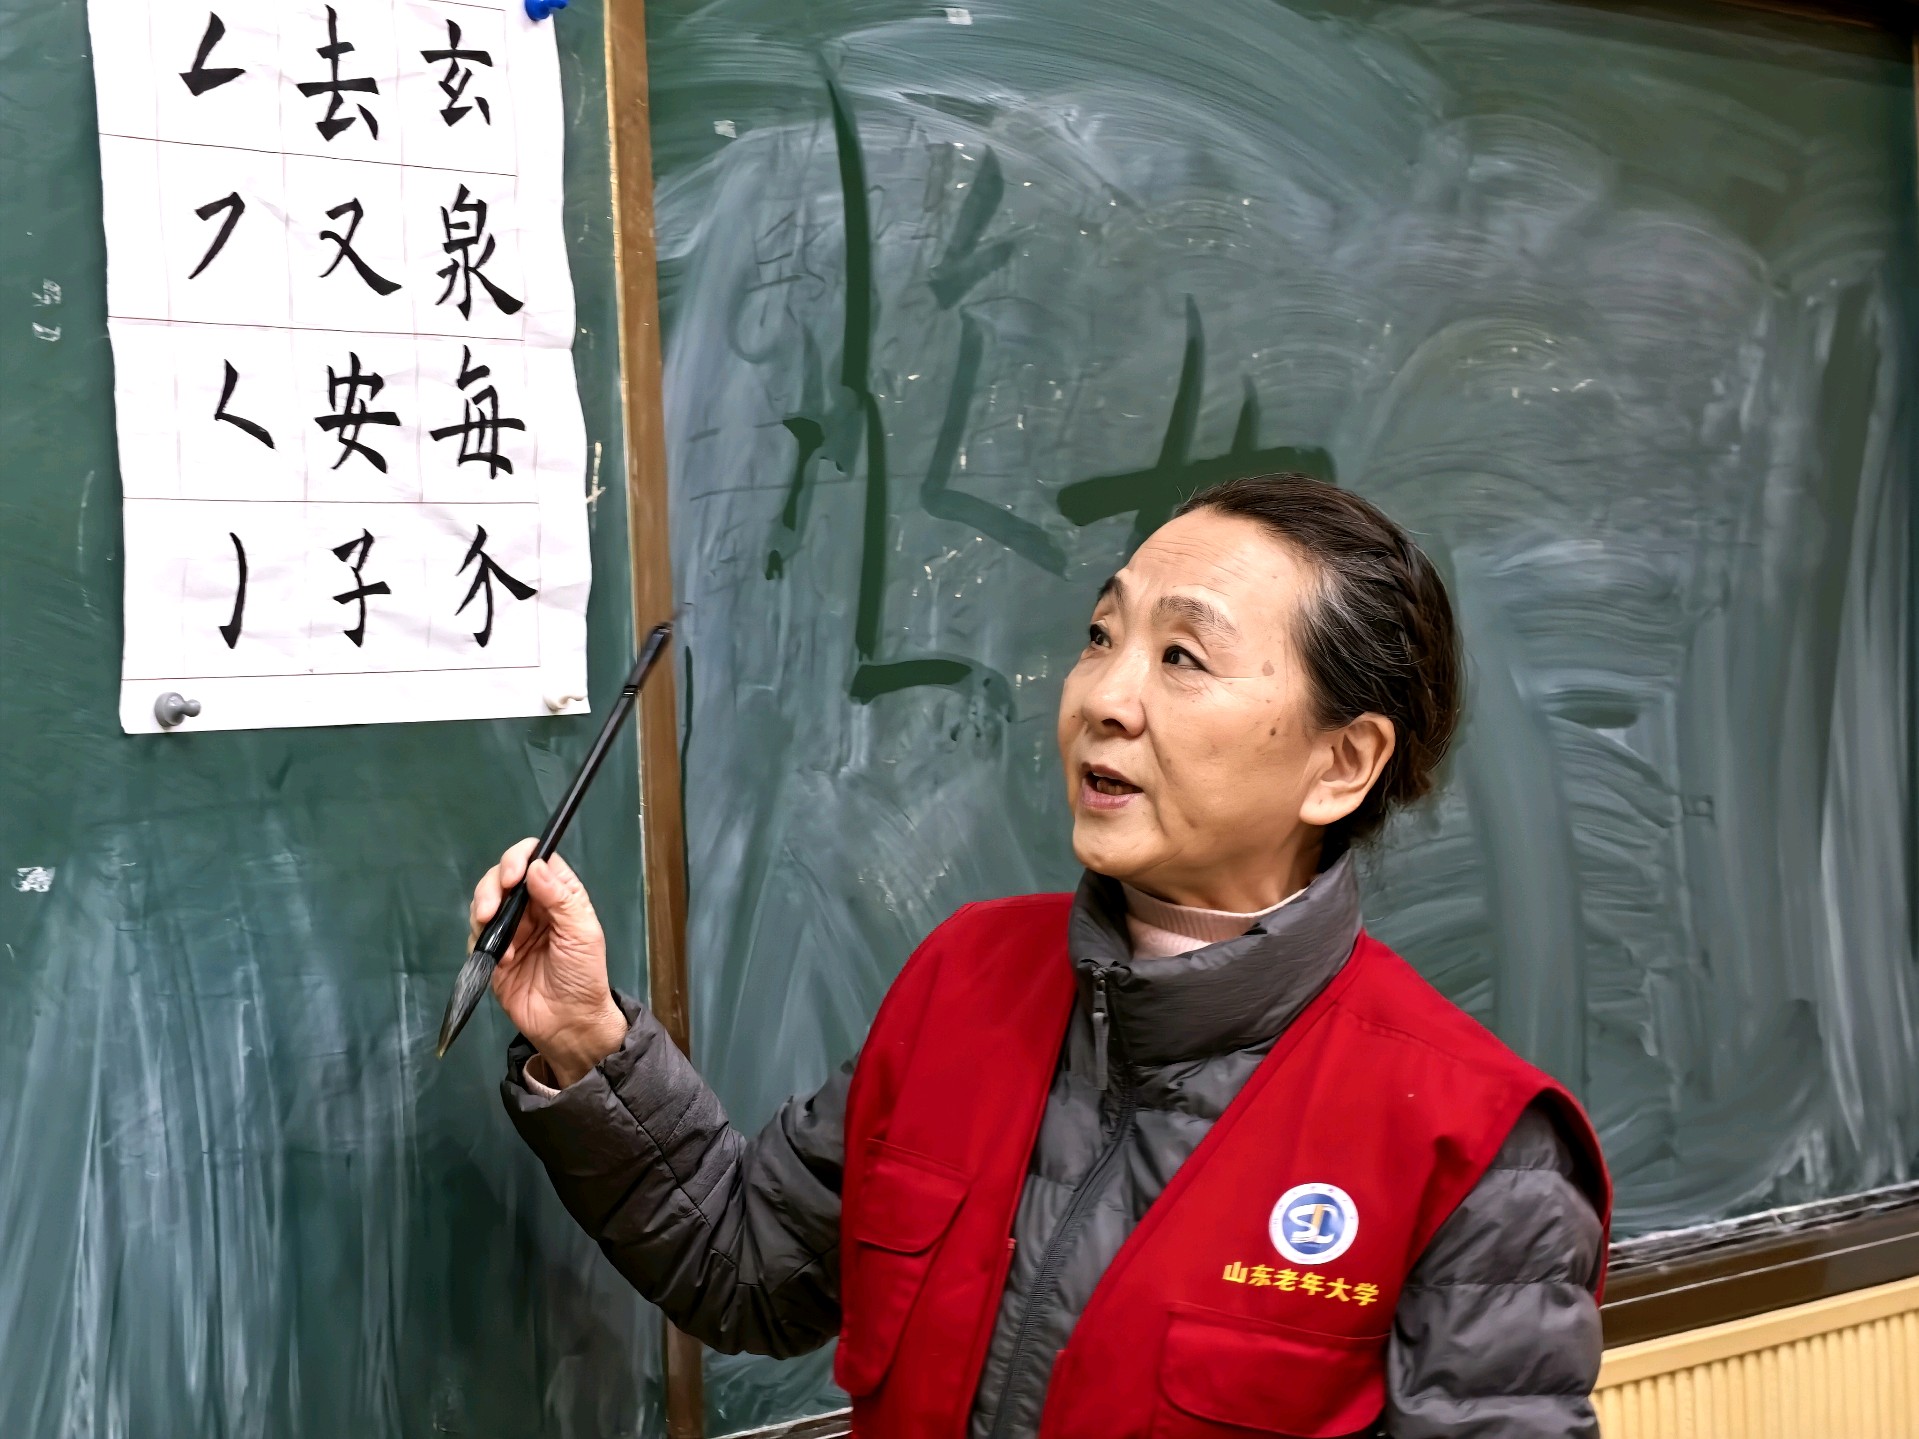 去 玄
又 泉
安 每
子
山东老年大学